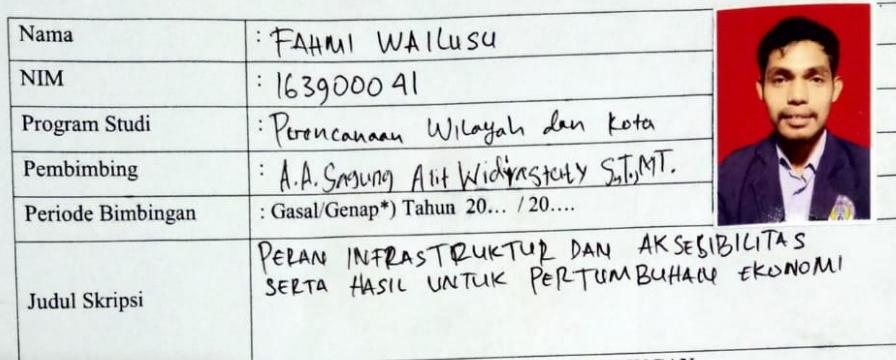 Nama : FAHMI WAILUSU
NIM : 163900041
Program Studi : Perencanaan Wilayah dan Kota
Pembimbing : A.A. Sagung Alit Widyastuty S.T.,MT.
Periode Bimbingan : Gasal/Genap*) Tahun 20... / 20....
Judul Skripsi PERAN INFRASTRUKTUR DAN AKSESIBILITAS
SERTA HASIL UNTUK PERTUMBUHAN EKONOMI